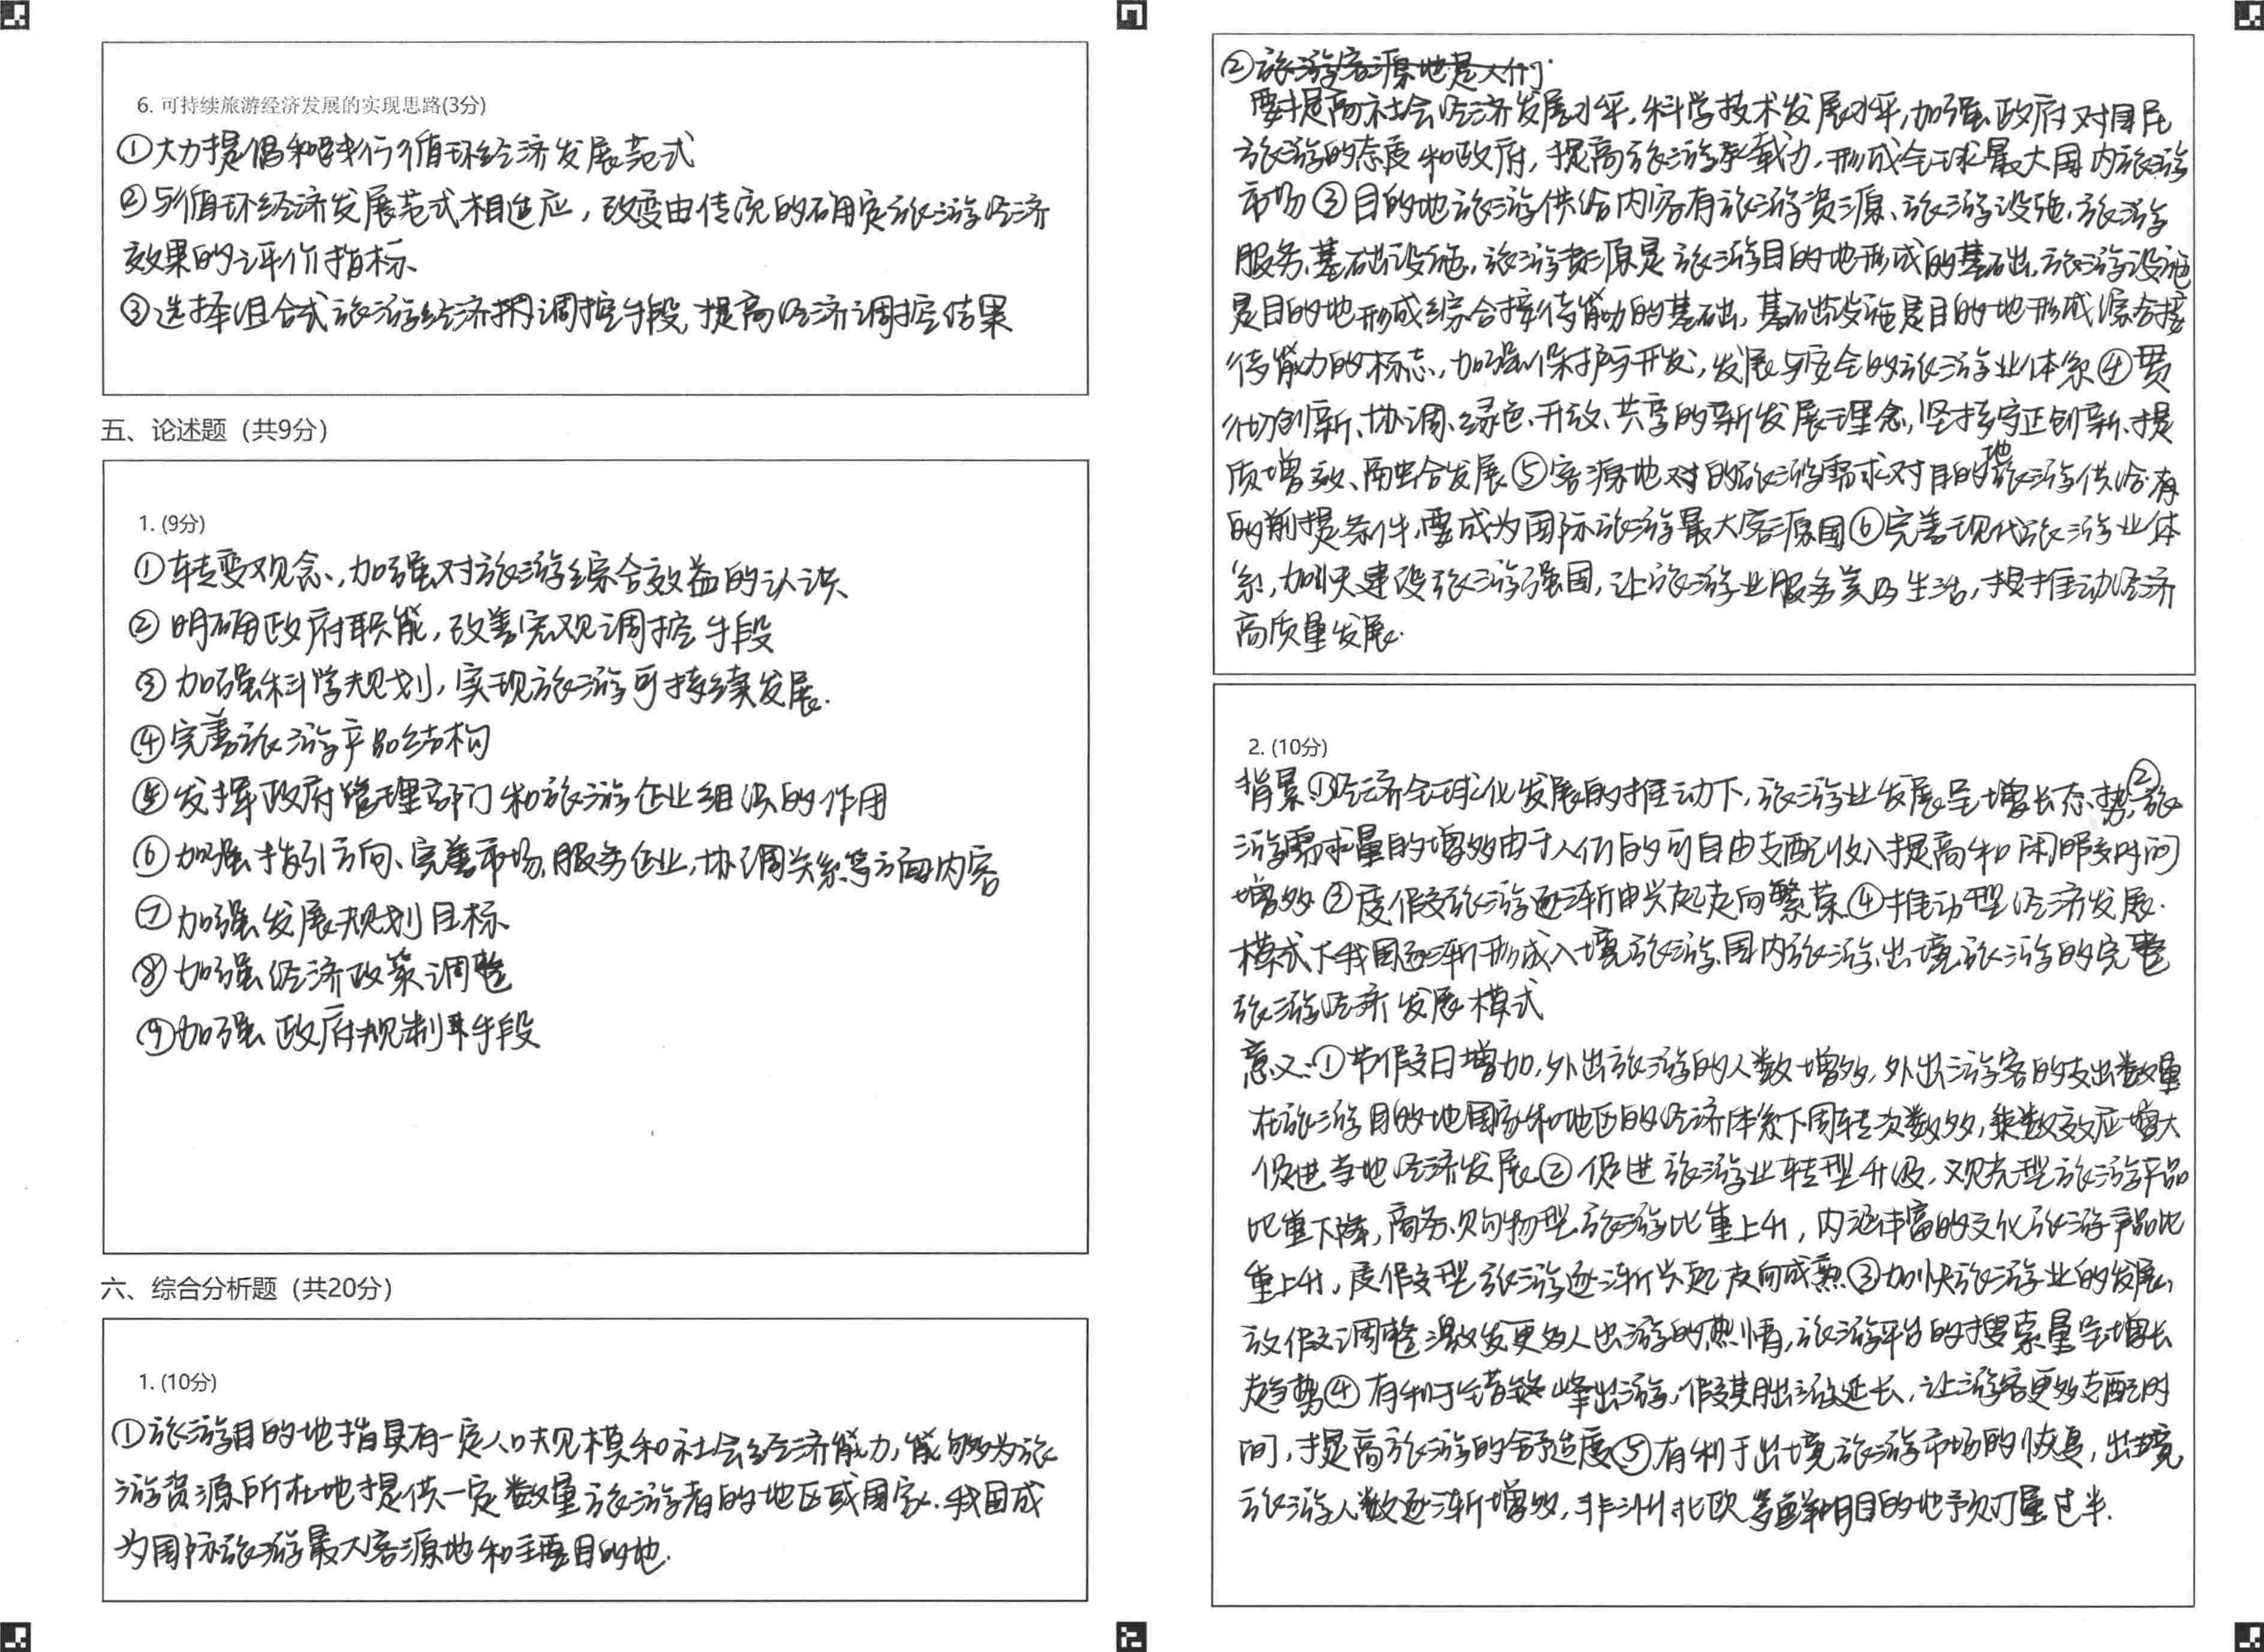 6. 可持续旅游经济发展的实现思路(3分)
①大力提倡和践行循环经济发展范式
②与循环经济发展范式相适应，改变由传统的确定旅游经济
效果的评价指标、
③选择组合式旅游经济调控手段，提高经济调控结果
五、论述题（共9分）
1. (9分)
①转变观念，加强对旅游综合效益的认识
②明确政府职能，改善宏观调控手段
③加强科学规划，实现旅游可持续发展.
④完善旅游产品结构
⑤发挥政府管理部门和旅游企业组织的作用
⑥加强指引方向、完善市场、服务企业，协调关系等方面内容
⑦加强发展规划目标
⑧加强经济政策调整
⑨加强政府规制手段
六、综合分析题（共20分）
1. (10分)
①旅游目的地指具有一定人口规模和社会经济能力，能够为旅
游资源所在地提供一定数量旅游者的地区或国家.我国成
为国际旅游最大客源地和主要目的地.
②旅游客源地是人们.
要提高社会经济发展水平，科学技术发展水平，加强政府对国民
旅游的态度和政府，提高旅游承载力，形成全球最大国内旅游
市场③目的地旅游供给内容有旅游资源、旅游设施、旅游
服务、基础设施，旅游资源是旅游目的地形成的基础，旅游设施
是目的地形成综合接待能力的基础，基础设施是目的地形成综合接
待能力的标志，加强保护与开发，发展与安全的旅游业体系④贯
彻创新、协调、绿色、开放、共享的新发展理念，坚持守正创新、提
质增效、融合发展⑤客源地对的旅游需求对目的地旅游供给有
的前提条件，要成为国际旅游最大客源国⑥完善现代旅游业体
系，加快建设旅游强国，让旅游业服务美好生活，推动经济
高质量发展.
2. (10分)
背景①经济全球化发展的推动下，旅游业发展呈增长态势，②旅
游需求量的增多由于人们的可自由支配收入提高和闲暇时间
增多③度假旅游逐渐由兴起走向繁荣④推动型经济发展.
模式下我国逐渐形成入境旅游、国内旅游、出境旅游的完整
旅游经济发展模式
意义：①节假日增加，外出旅游的人数增多，外出游客的支出数量
在旅游目的地国家和地区的经济体系下周转次数多，乘数效应增大
促进当地经济发展②促进旅游业转型升级，观光型旅游产品
比重下降，商务、购物型旅游比重上升，内涵丰富的文化旅游产品比
重上升，度假型旅游逐渐兴起走向成熟③加快旅游业的发展，
放假调整激发更多人出游的热情，旅游平台的搜索量呈增长
趋势④有利于错峰出游，假期出游延长，让游客更多支配时
间，提高旅游的舒适度⑤有利于出境旅游市场的恢复，出境
旅游人数逐渐增多，非洲北欧等鲜明目的地预订量过半.